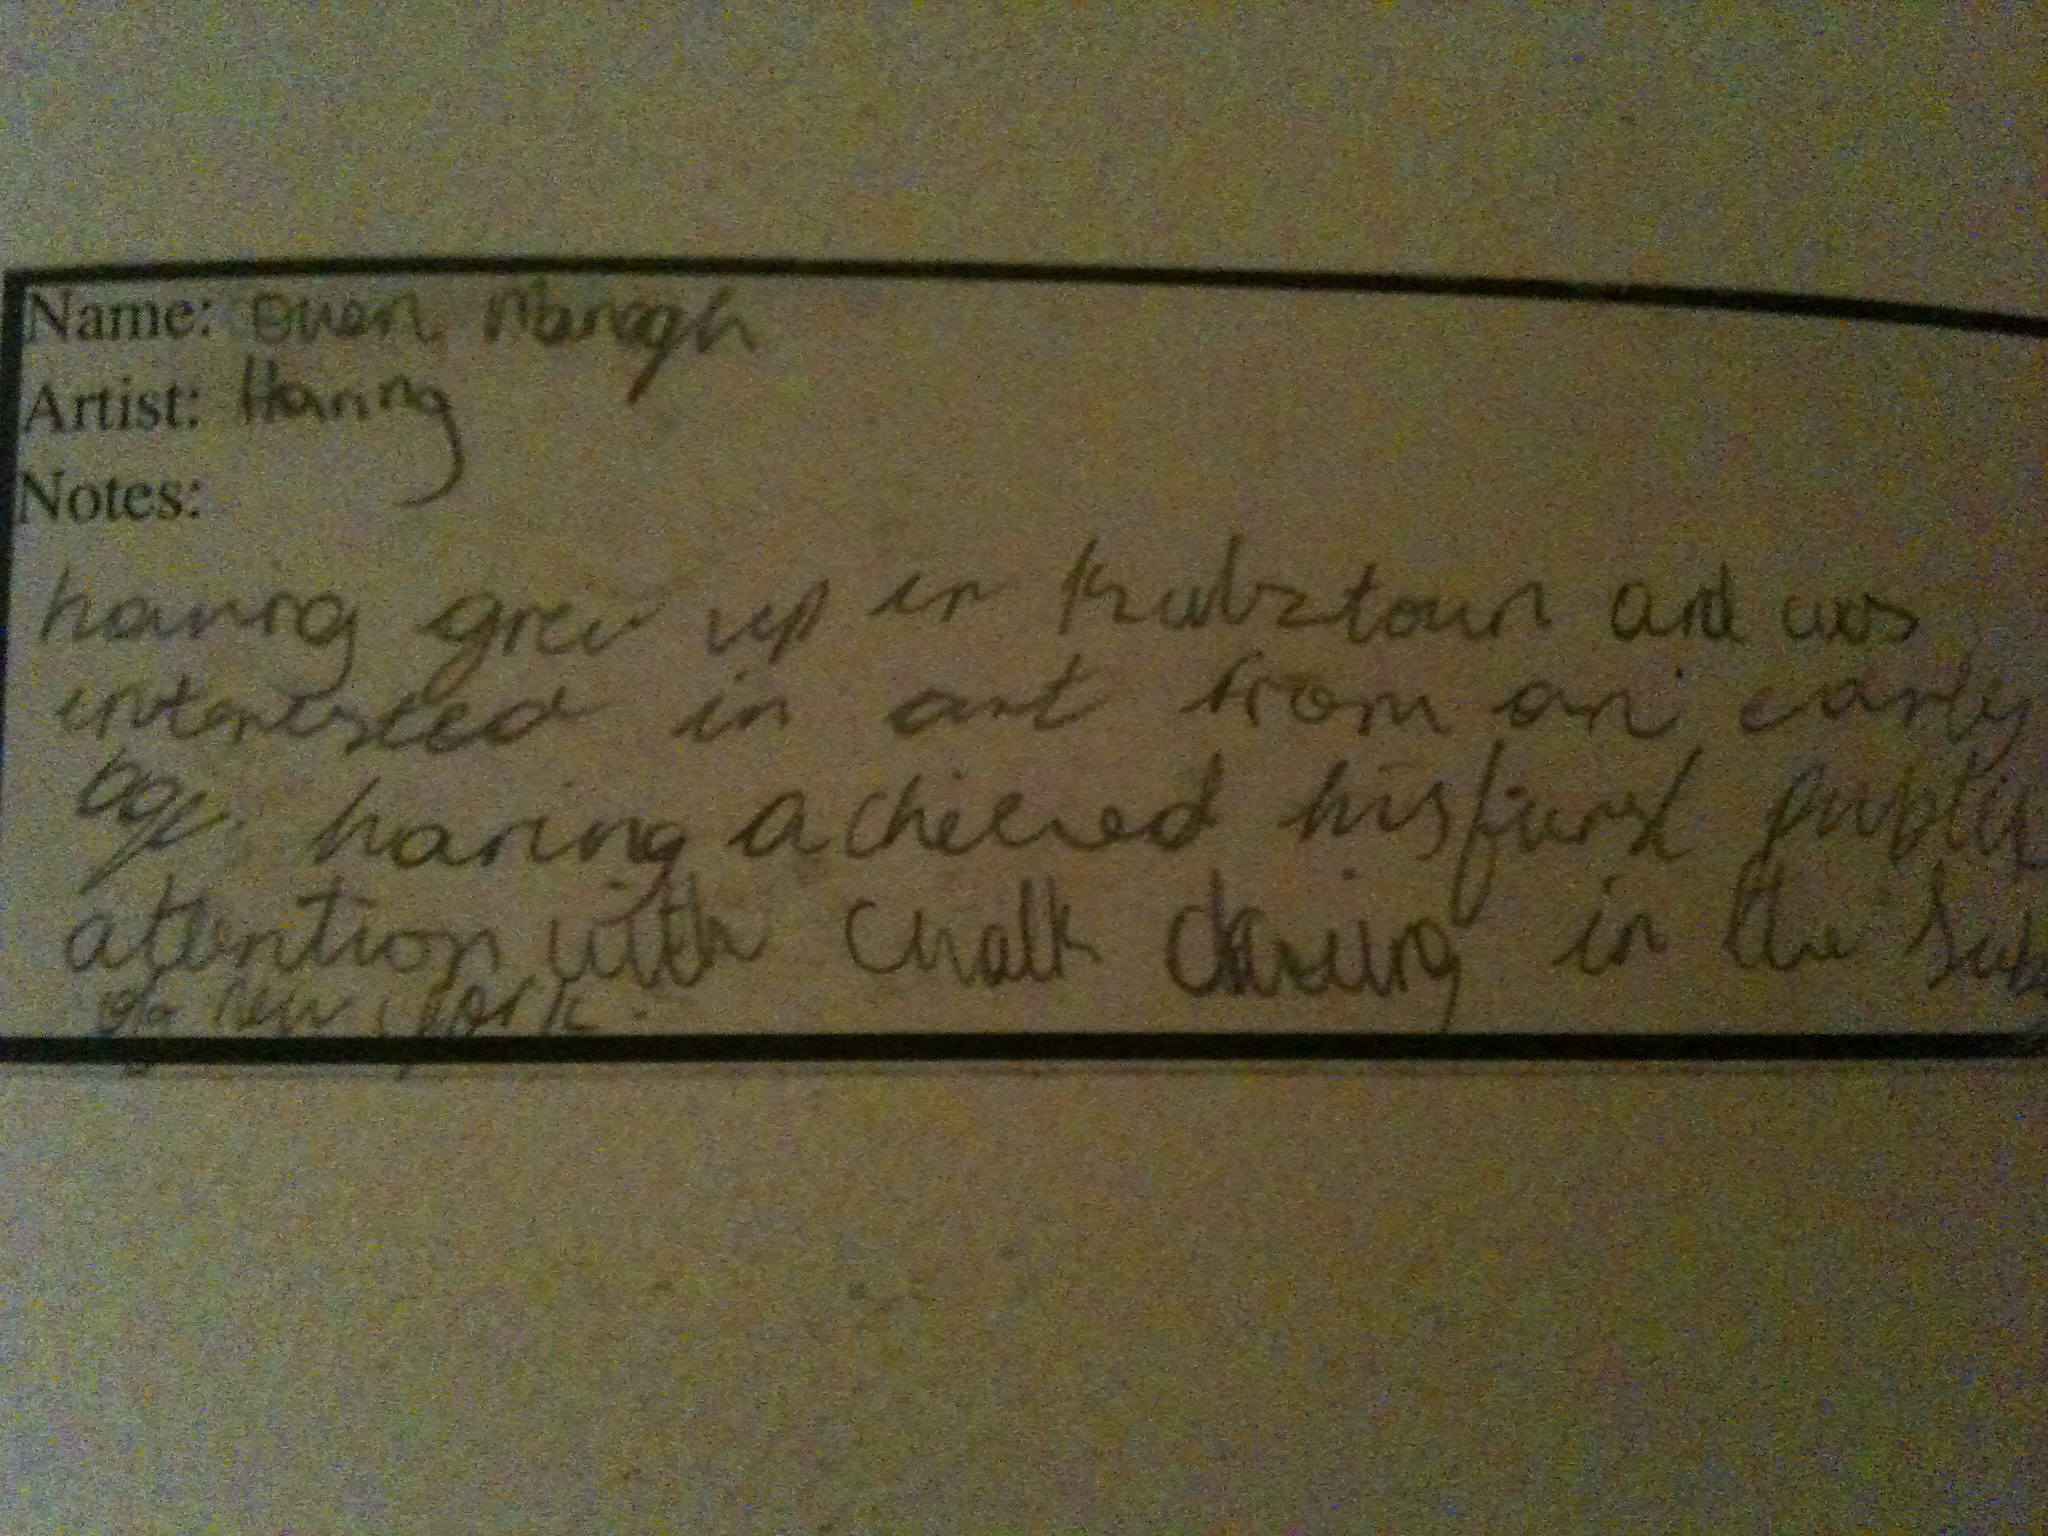 Name: Owen Managh
Artist: Haring
Notes:
haring grew up in Kubztown and was
interested in art from an early
age. haring achieved his first public
attention with chalk drawing in the Sub
of New york.